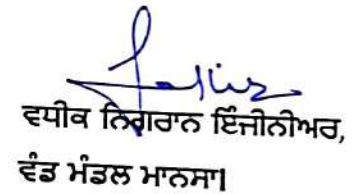 ਵਧੀਕ ਨਿਗਰਾਨ ਇੰਜੀਨੀਅਰ,
ਵੰਡ ਮੰਡਲ ਮਾਨਸਾ।